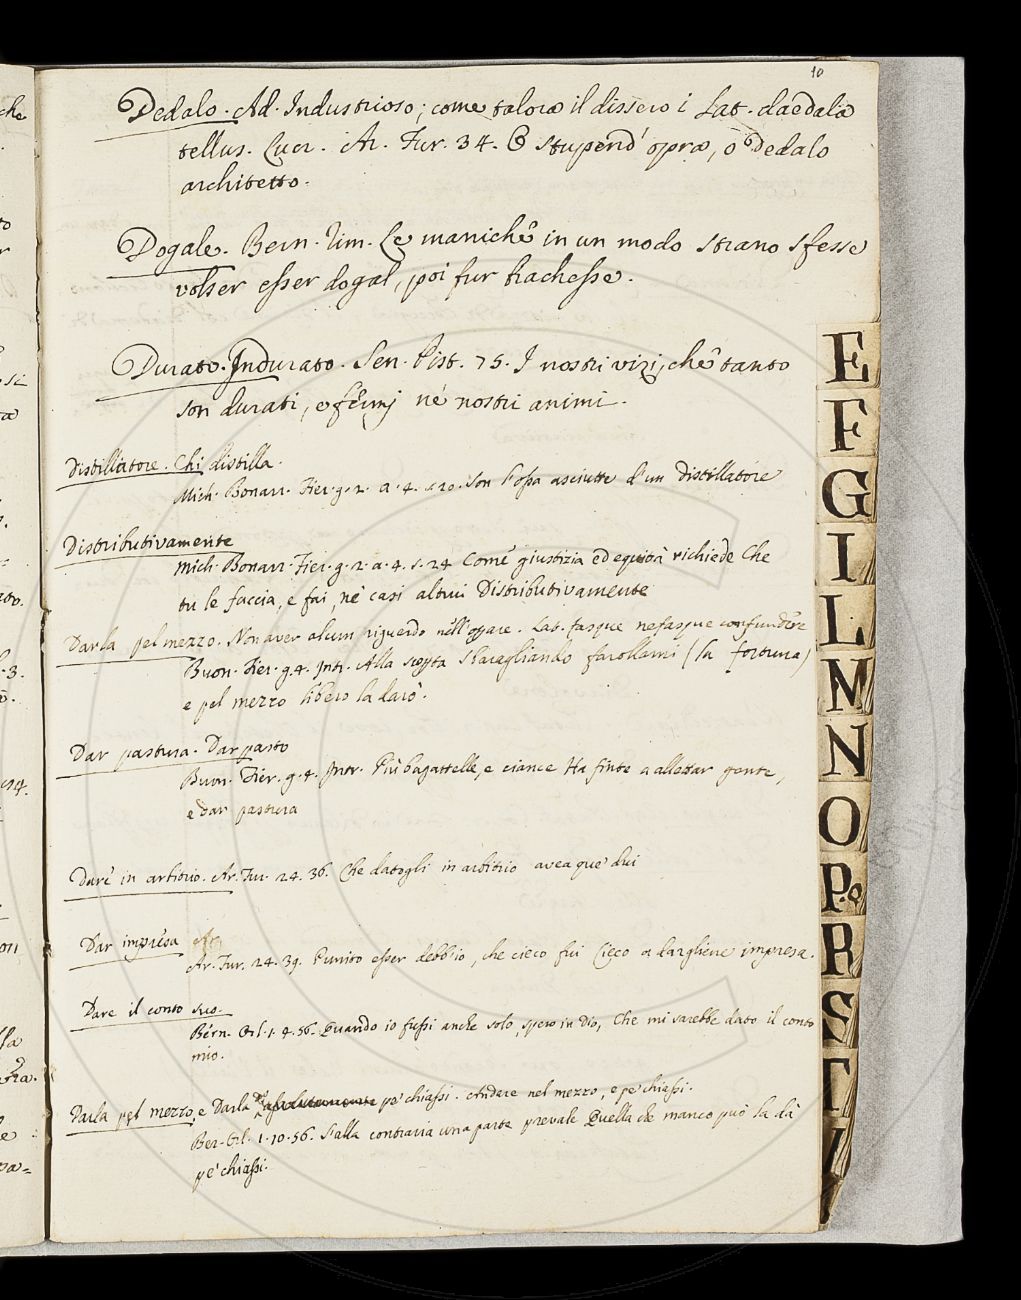 10
Dedalo. Ad. Industrioso; come talora il dissero i Lat. daedala
tellus. Lucr. Ar. Fur. 34. O stupend' opra, o Dedalo
architetto.
Dogale. Bern. Rim. Le maniche in un modo strano sfesse
volser esser dogal, poi fur brachesse.
Durato. Indurato. Sen. Pist. 75. I nostri vizi, che tanto
son durati, e fermi ne' nostri animi.
Distillatore. Chi distilla.
Mich. Bonarr. Fier. g. 2. a. 4. s. 20. Son l'ossa asciutte d'un Distillatore
Distributivamente
Mich. Bonarr. Fier. g. 2. a. 4. s. 24 Come giustizia ed equità richiede Che
tu le faccia, e fai, ne' casi altrui Distributivamente
Darla pel mezzo. Non aver alcun riguardo nell' oprare. Lat. fasque nefasque confundere
Buon. Fier. g. 4. Intr. Alla scopta Sbaragliando farollami (la fortuna)
e pel mezzo libero la darò.
Dar pastura. Dar pasto
Buon. Fier. g. 4. Intr. Più bagattelle, e ciance Ha finte a allettar gente,
e dar pastura
Dare in arbitrio. Ar. Fur. 24. 36. Che datogli in arbitrio avea que' dui
Dar impresa Ar.
Ar. Fur. 24. 39. Punito esser debb'io, che cieco fui Cieco a dargliene impresa.
Dare il conto suo.
Bern. Orl. 1. 4. 56. Quando io fussi anche solo, spero in Dio, Che mi sarebbe dato il conto
mio.
Darla pel mezzo, e Darla pe' chiassi. Andare nel mezzo, e pe' chiassi.
Ber. Orl. 1. 10. 56. Dalla contraria una parte prevale Quella che manco può la dà
pe' chiassi.
E
F
G
I
L
M
N
O
P.Q
R
S
T
V